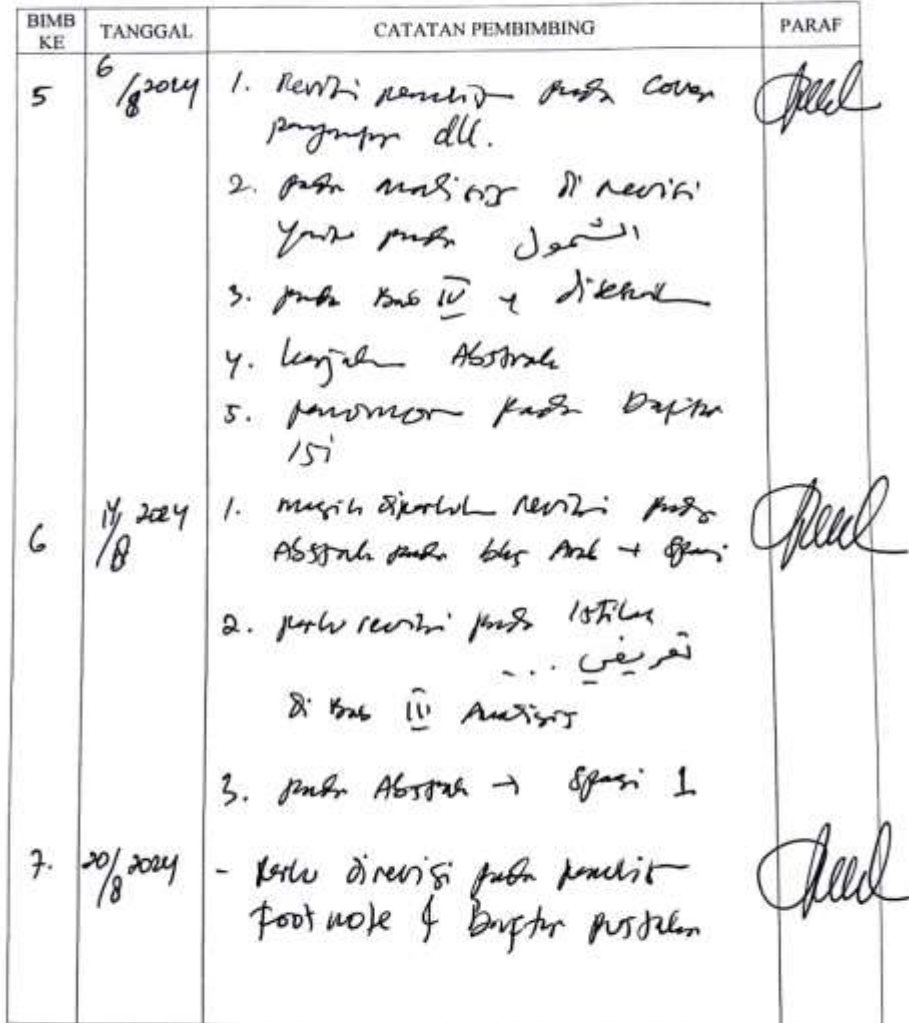 BIMB KE TANGGAL CATATAN PEMBIMBING PARAF
5 6/8 2024 1. Revisi penulisan pada Cover
dll.
2. pada analisis di revisi
yaitu pada الشمول
3. pada Bab IV
4. Abstrak
5. penomoran pada Daftar
isi
6 14/8 2024 1. masih diperlukan revisi pada
Abstrak pada bhs Arab → spasi
2. perlu revisi pada istilah
تعريفي ...
di Bab III Analisis
3. pada Abstrak → spasi 1
7. 20/8 2024 - perlu direvisi pada penulisan
footnote & Daftar pustaka